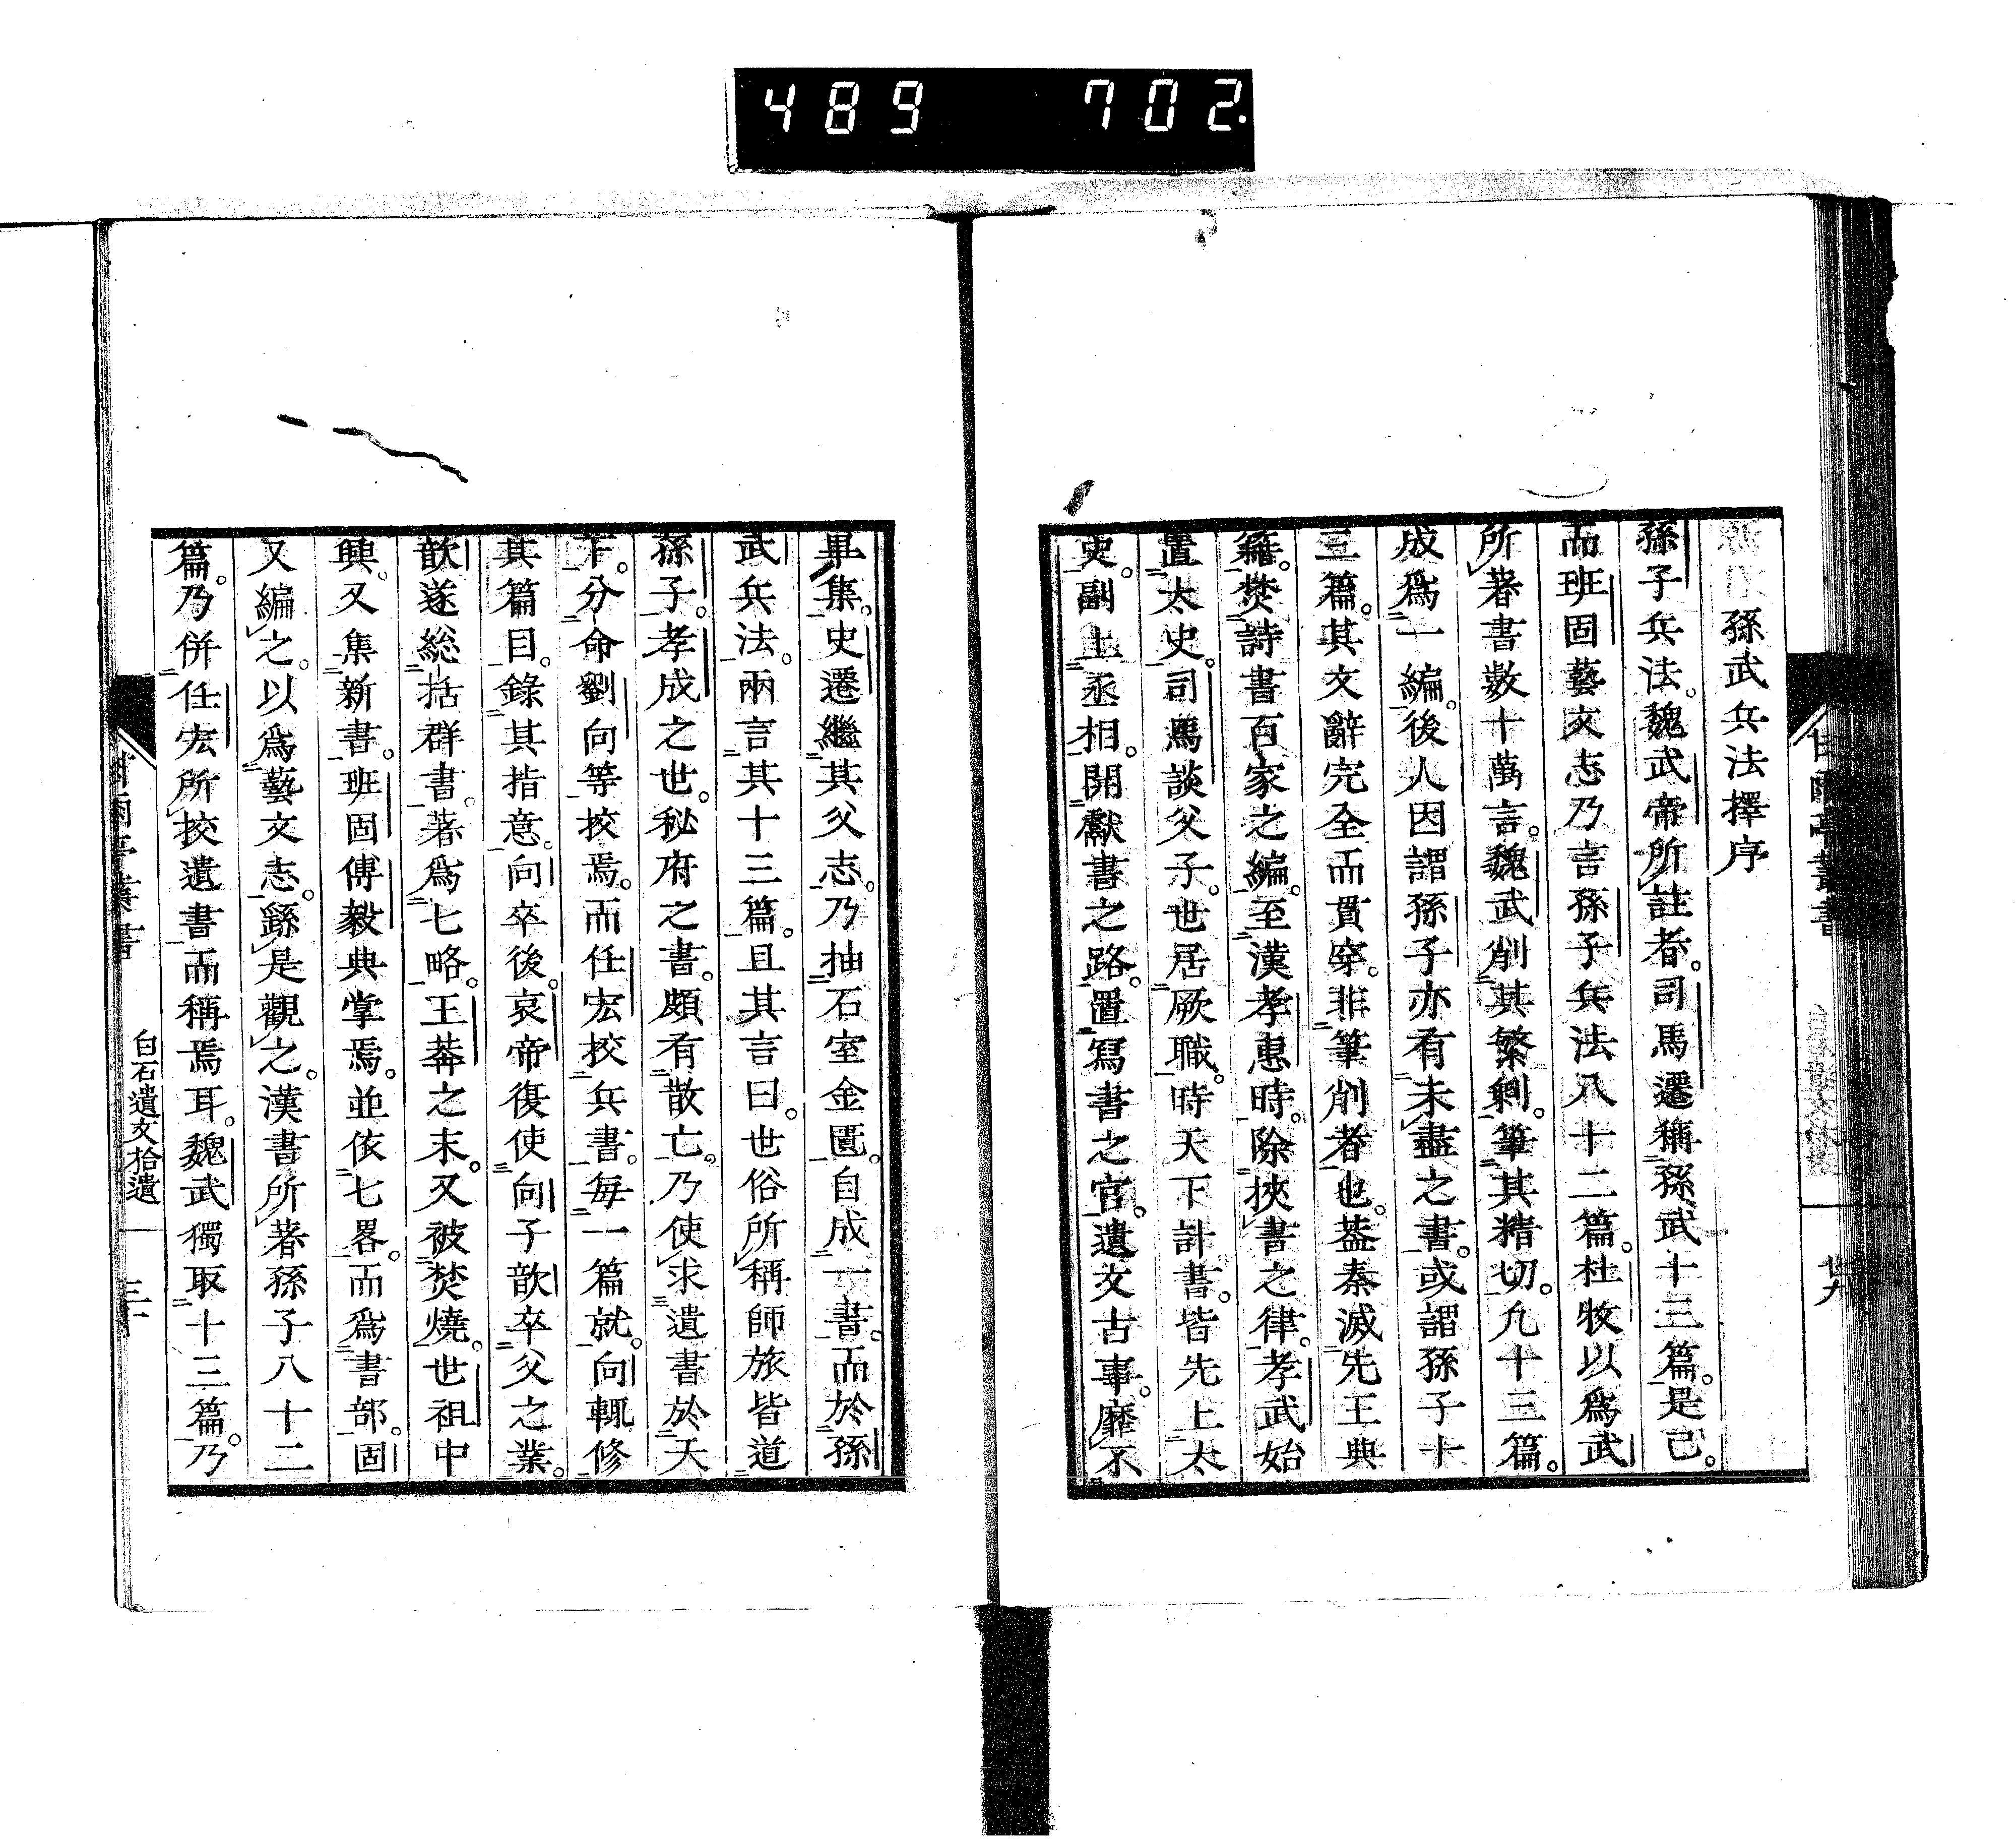 489 702.
孫武兵法擇序
孫子兵法。魏武帝所註者。司馬遷稱孫武十三篇。是已。
而班固藝文志乃言孫子兵法八十二篇。杜牧以爲武
所著書數十萬言。魏武削其繁剩。筆其精切。凢十三篇。
成爲一編。後人因謂孫子亦有未盡之書。或謂孫子十
三篇。其文辭完全而貫穿。非筆削者也。葢秦滅先王典
籍。焚詩書百家之編。至漢孝惠時。除挾書之律。孝武始
置太史。司馬談父子。世居厥職。時天下計書。皆先上太
史。副上丞相。開獻書之路。置寫書之官。遺文古事。靡不
畢集。史遷繼其父志。乃抽石室金匱。自成一書。而於孫
武兵法。兩言其十三篇。且其言曰。世俗所稱師旅皆道
孫子。孝成之世。秘府之書。頗有散亡。乃使求遺書於天
下。分命劉向等挍焉。而任宏挍兵書。每一篇就。向輒修
其篇目。錄其指意。向卒後。哀帝復使向子歆卒父之業。
歆遂総括群書。著爲七略。王莽之末。又被焚燒。世祖中
興。又集新書。班固傅毅典掌焉。並依七畧。而爲書部。固
又編之。以爲藝文志。繇是觀之。漢書所著孫子八十二
篇。乃併任宏所挍遺書而稱焉耳。魏武獨取十三篇。乃
白石遺文拾遺